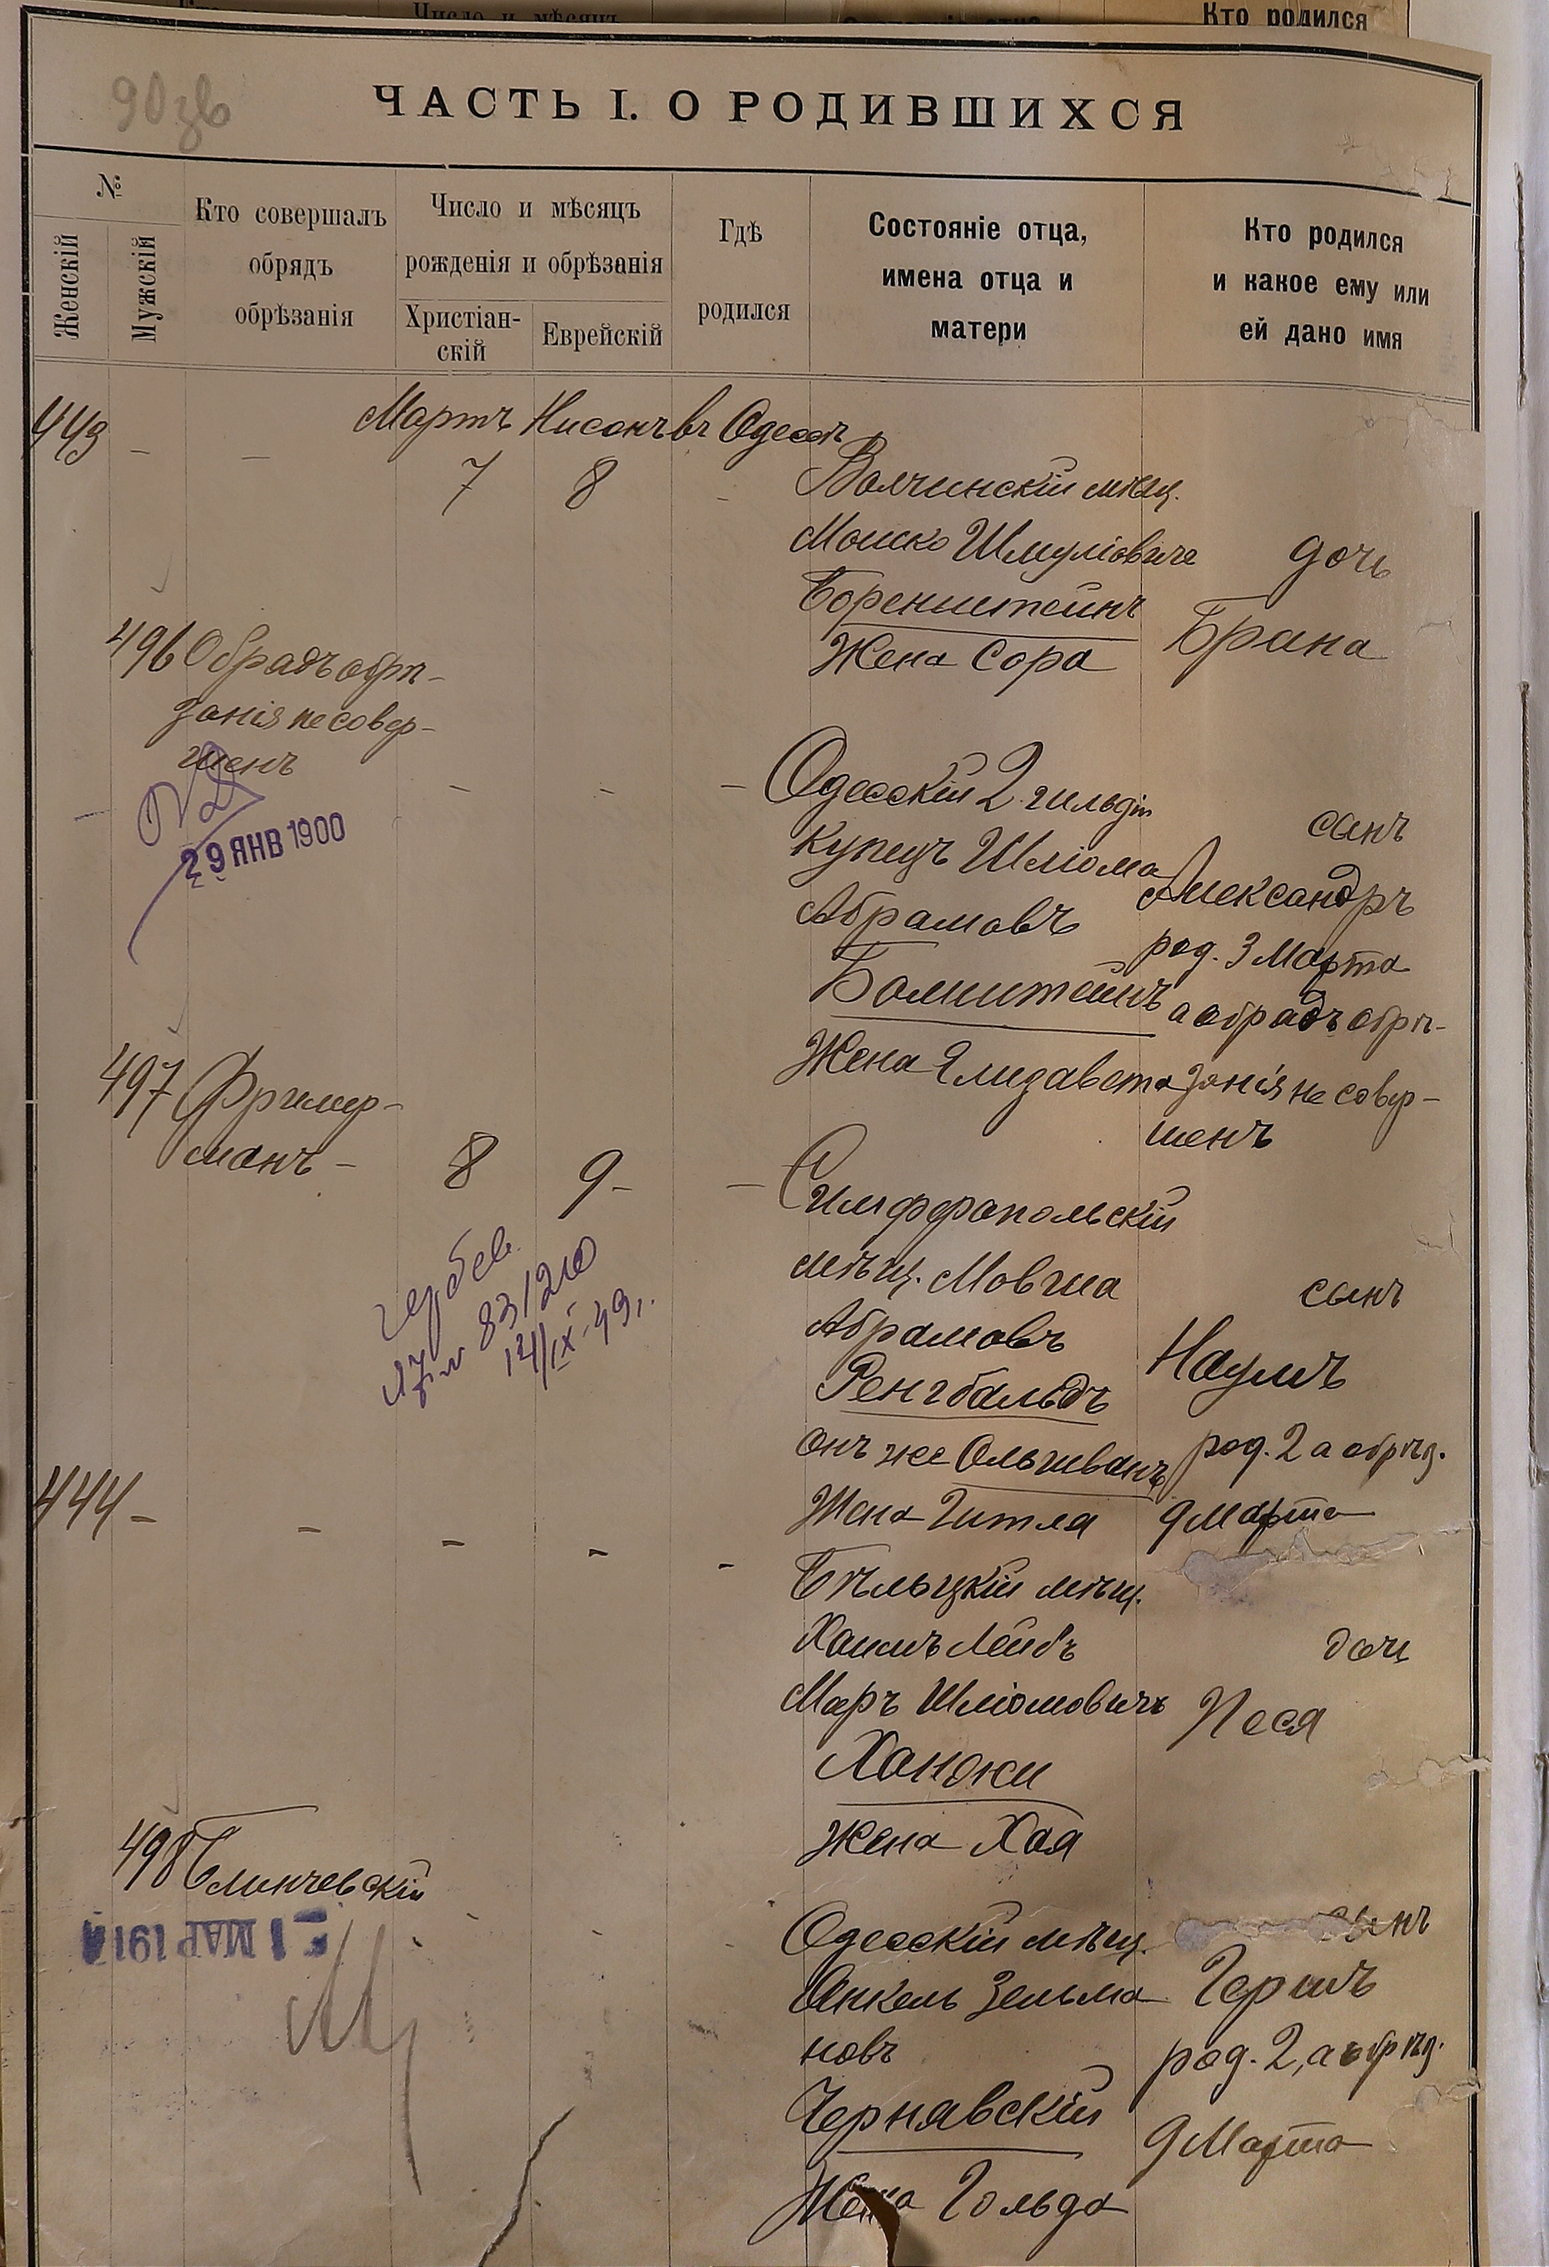 Кто родился
90 зв
ЧАСТЬ I. О РОДИВШИХСЯ
№
Женскій
Мужскій
Кто совершалъ
обрядъ
обрѣзанія
Число и мѣсяцъ
рожденія и обрѣзанія
Христіан-
скій
Еврейскій
Гдѣ
родился
Состояніе отца,
имена отца и
матери
Кто родился
и какое ему или
ей дано имя
443 - - Мартъ Нисонъ въ Одессѣ
7 8 -
Волчинскій мѣщ.
Моиско Шмуліовичъ
Боренштейнъ
Жена Сора
дочь
Брана
496 Обрядъ обрѣ-
занія не совер-
шенъ
29 ЯНВ 1900
- - -
Одесскій 2 гильдіи
купецъ Шліома
Абрамовъ
Бомштейнъ
Жена Елизавета
сынъ
Александръ
род. 3 Марта
а обрядъ обрѣ-
занія не совер-
шенъ
497 Фришер-
манъ -
8 9 - -
83/210
14/IX-49г.
Симферопольскій
мѣщ. Мовша
Абрамовъ
Рейгбальдъ
онъ же Ольшванъ
Жена Гитля
сынъ
Наумъ
род. 2 а обрѣз.
9 Марта
444 - - - - -
Бѣльцкій мѣщ.
Хаимъ Лейбъ
Маръ Шліомовичъ
Ханоки
Жена Хая
дочь
Песя
498 Блинчевскій
1 МАР 191
- - -
Одесскій мѣщ.
Янкель Зельма
новъ
Чернявскій
Жена Гольда
сынъ
Гершъ
род. 2, а обрѣз.
9 Марта